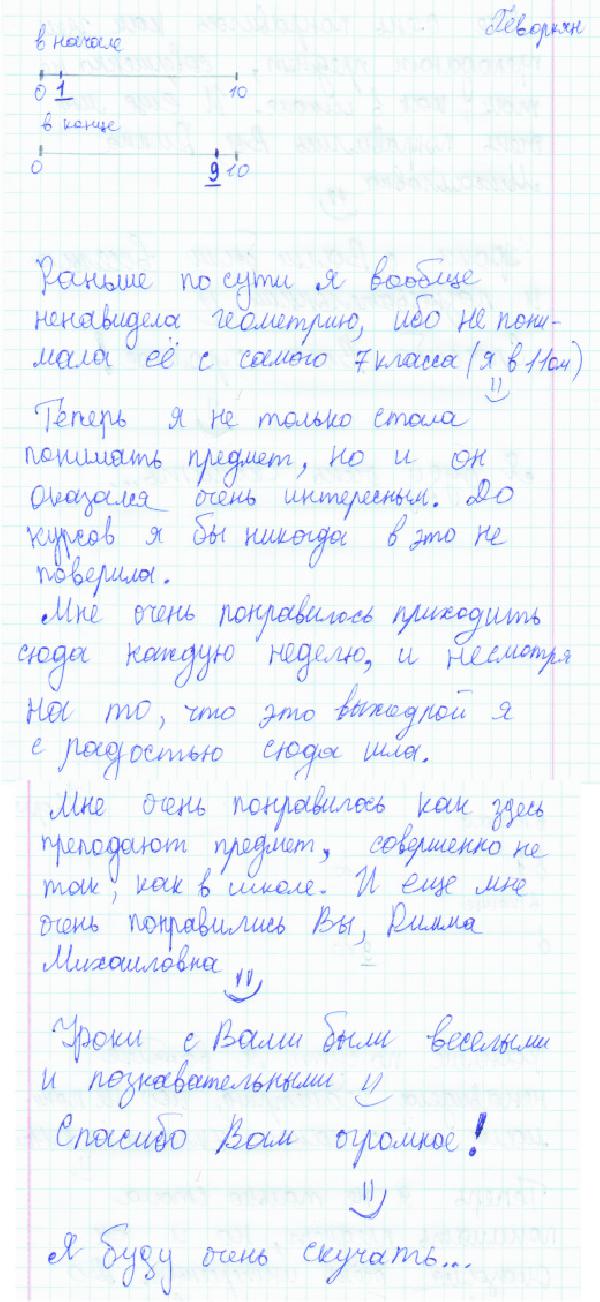 Геворкян
в начале
0 1 10
в конце
0 9 10
Раньше по сути я вообще
ненавидела геометрию, ибо не пони-
мала её с самого 7 класса (я в 11ом)
Теперь я не только стала
понимать предмет, но и он
оказался очень интересным. До
курсов я бы никогда в это не
поверила.
Мне очень понравилось приходить
сюда каждую неделю, и несмотря
на то, что это выходной я
с радостью сюда шла.
Мне очень понравилось как здесь
преподают предмет, совершенно не
так, как в школе. И еще мне
очень понравились Вы, Римма
Михайловна
Уроки с Вами были веселыми
и познавательными
Спасибо Вам огромное!
Я буду очень скучать...